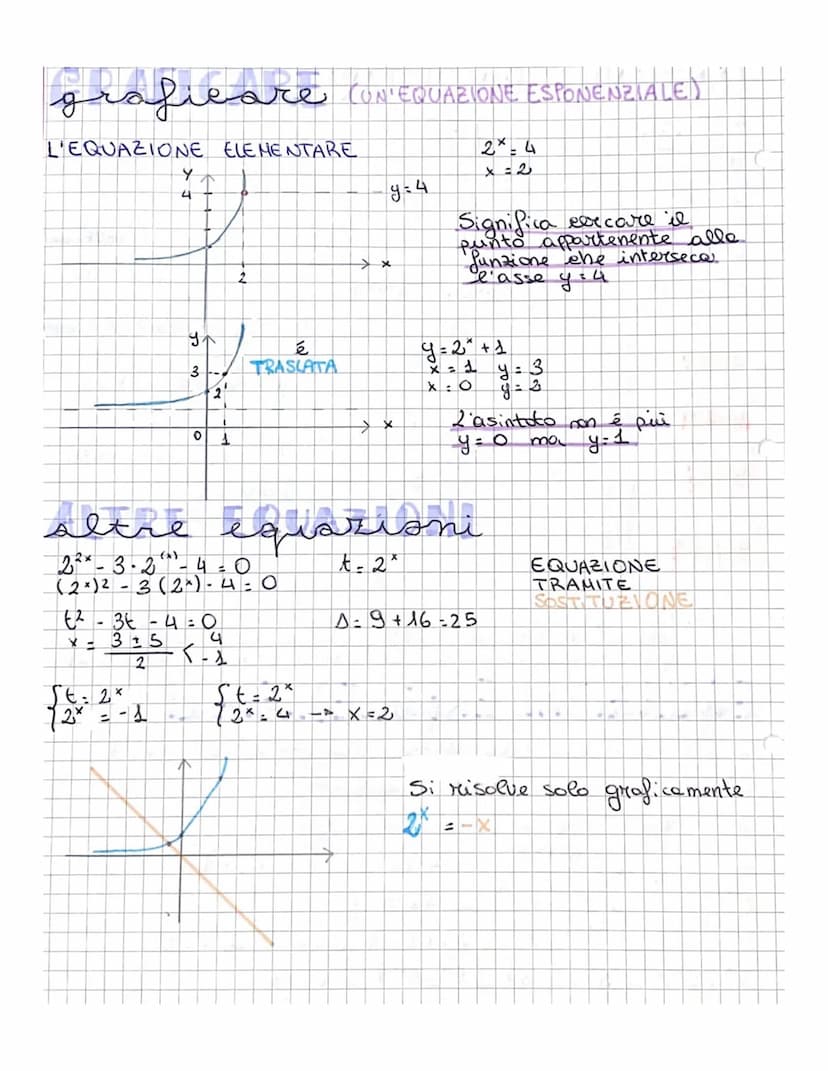 GRAFICARE
graficare (UN'EQUAZIONE ESPONENZIALE)
L'EQUAZIONE ELEMENTARE
2ˣ = 4
x = 2
y
4
y = 4
x
2
Significa cercare il
punto appartenente alla
funzione che interseca
l'asse y = 4
y
3
2
0
1
x
é
TRASLATA
y = 2ˣ + 1
x = 1 y = 3
x = 0 y = 2
L'asintoto non é piú
y = 0 ma y = 1
ALTRE EQUAZIONI
altre equazioni
2²ˣ - 3 · 2⁽ˣ⁾ - 4 = 0 t = 2ˣ
(2ˣ)2 - 3 (2ˣ) - 4 = 0
EQUAZIONE
TRAMITE
SOSTITUZIONE
t² - 3t - 4 = 0 Δ = 9 + 16 = 25
x = 3 ± 5 / 2 < 4
- 1
{ t = 2ˣ { t = 2ˣ
2ˣ = -1 2ˣ = 4 → x = 2
Si risolve solo graficamente
2ˣ = -x